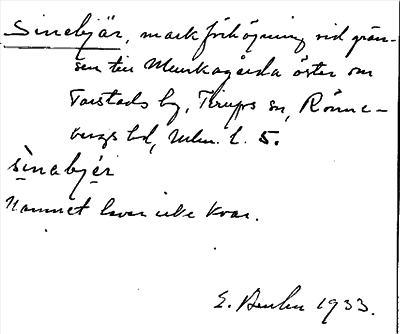 Sinabjär, markförhöjning vid grän-
sen till Munkagårda öster om
Torstads by, Tirups sn, Rönne-
bergs hd, Mlm. l. 5.
sìnabjér
Namnet lever icke kvar.
E. 1933.